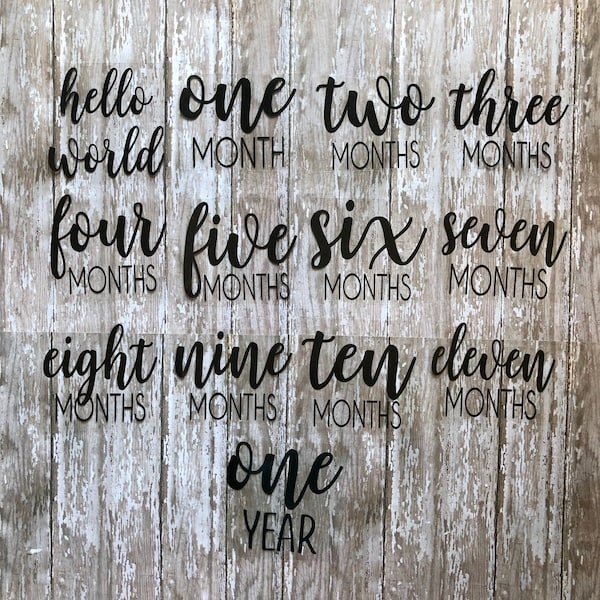 hello
world
one
MONTH
two
MONTHS
three
MONTHS
four
MONTHS
five
MONTHS
six
MONTHS
seven
MONTHS
eight
MONTHS
nine
MONTHS
ten
MONTHS
eleven
MONTHS
one
YEAR